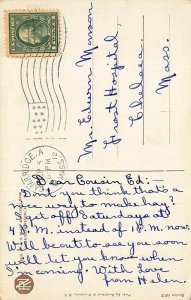 Mr. Edwin Manson
Frost Hospital,
Chelsea,
Mass.
Dear Cousin Ed:-
Don't you think that's a
nice way to make hay?
I get off Saturdays at
4 P.M. instead of P.M. now.
Will be out to see you soon
will let you know when
I'm coming. With love
from Hale